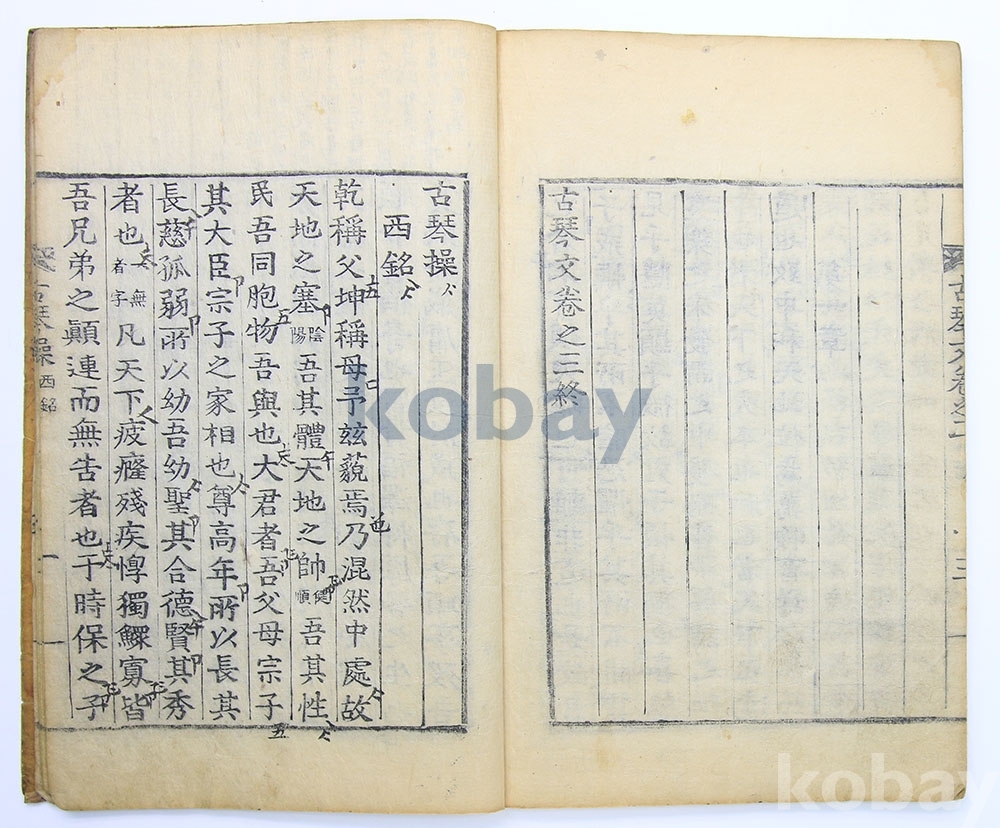 古琴文卷之三終
古琴文卷之
三
古琴操
西銘
乾稱父坤稱母予玆藐焉乃混然中處故
天地之塞陰陽吾其體天地之帥健順吾其性
民吾同胞物吾與也大君者吾父母宗子
其大臣宗子之家相也尊高年所以長其
長慈孤弱所以幼吾幼聖其合德賢其秀
者也一無者字凡天下疲癃殘疾惸獨鰥寡皆
吾兄弟之顚連而無告者也于時保之子
古琴操 西銘
一
kobay
kobay